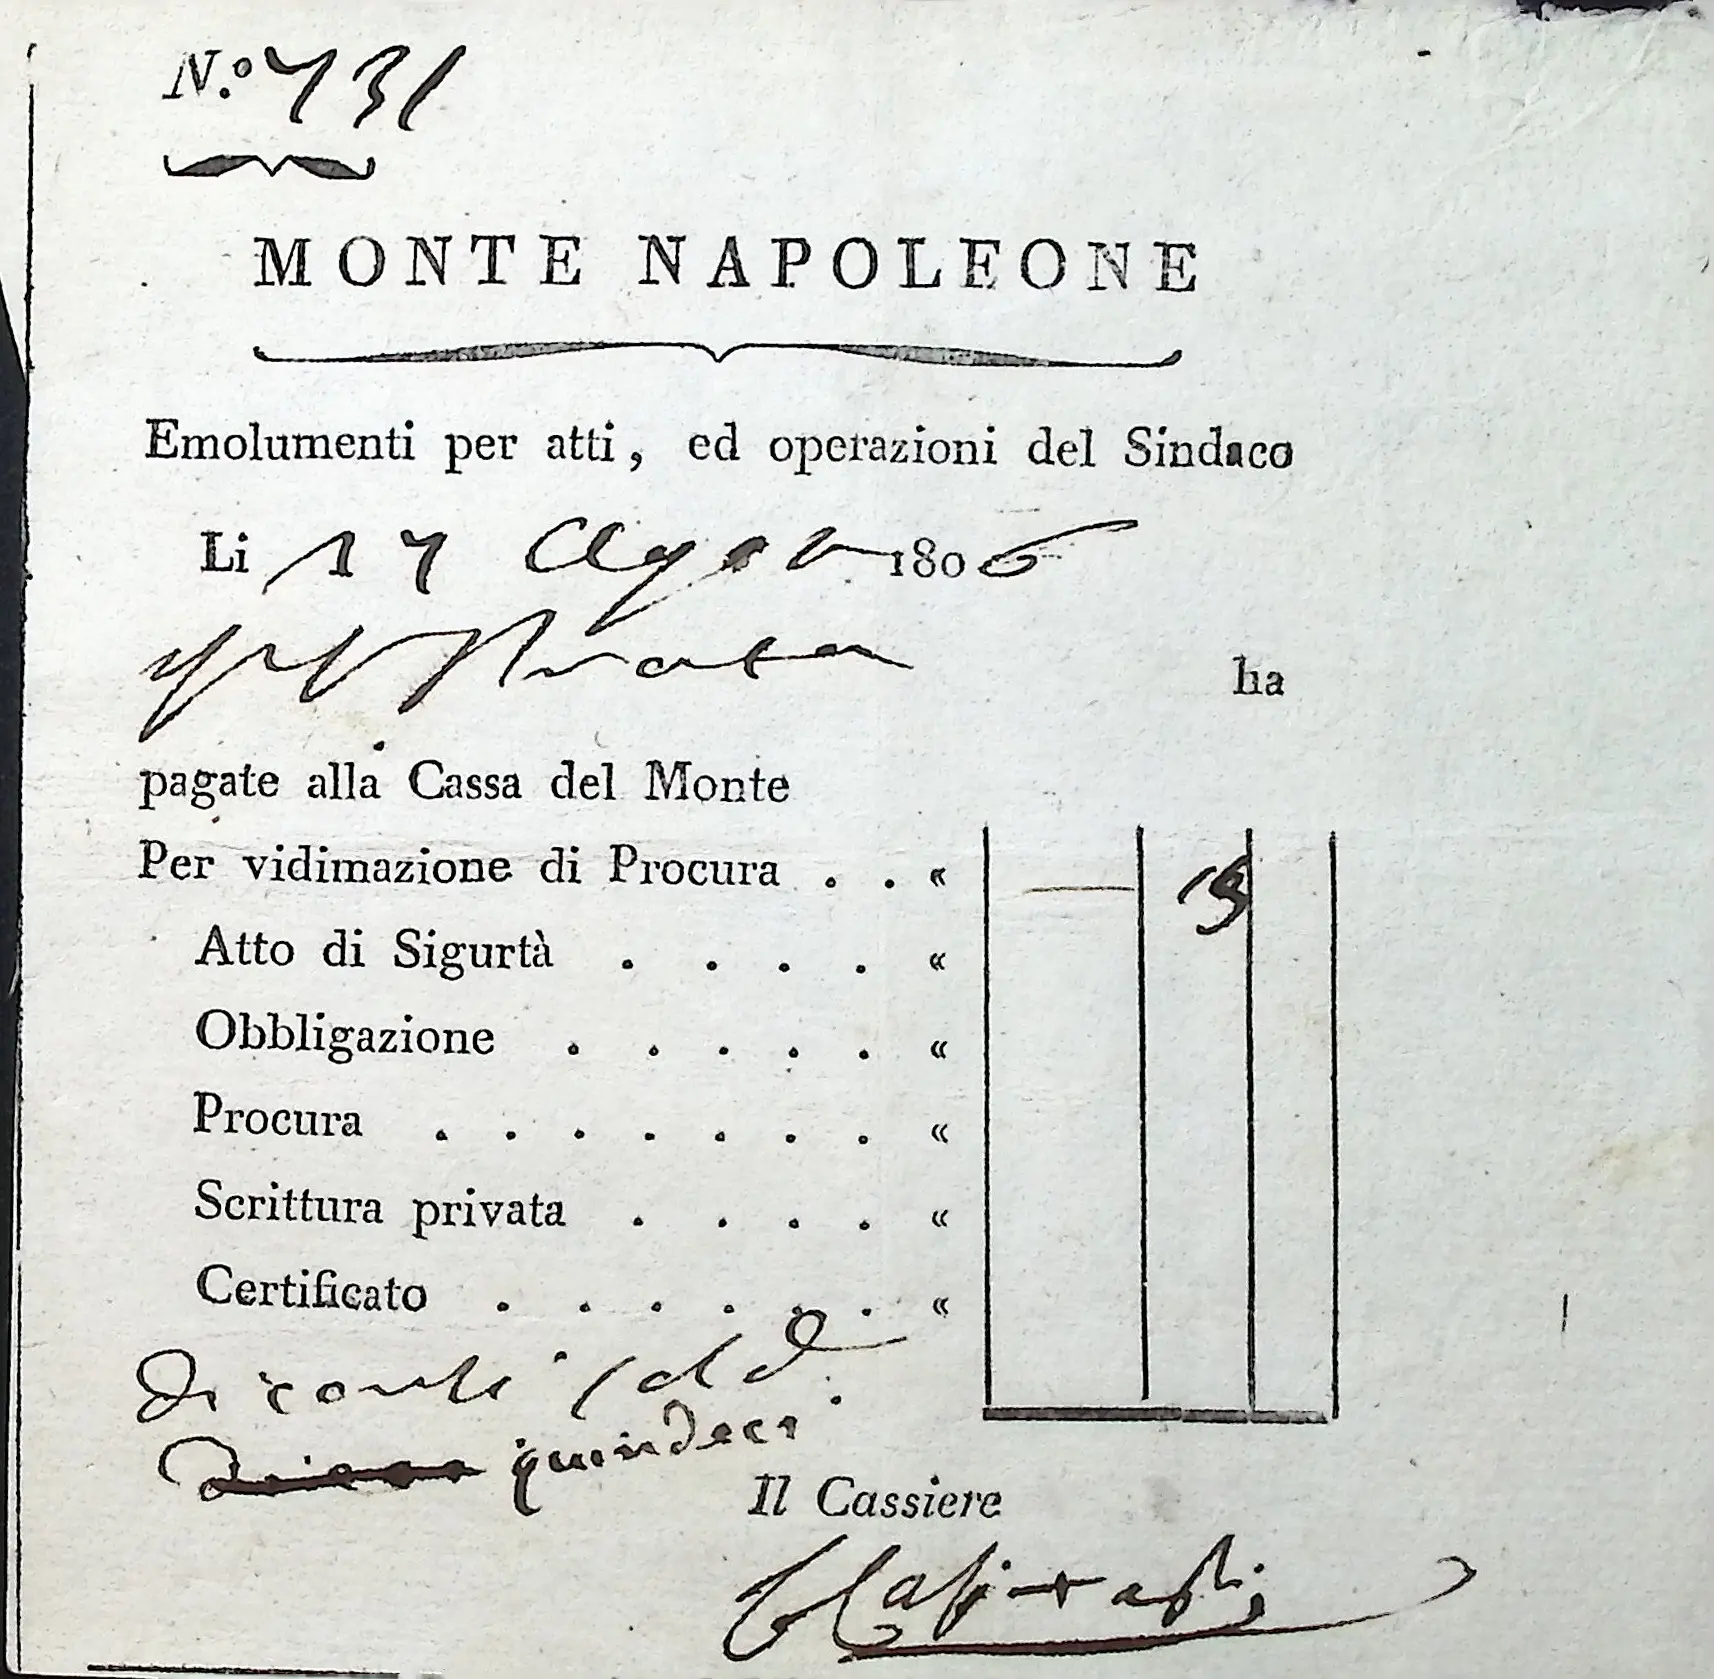 N.° 731
MONTE NAPOLEONE
Emolumenti per atti, ed operazioni del Sindaco
Li 17 Agosto 1806
ha
pagate alla Cassa del Monte
Per vidimazione di Procura . . « — 15
Atto di Sigurtà . . . . «
Obbligazione . . . . . «
Procura . . . . . . . «
Scrittura privata . . . . «
Certificato . . . . . . «
quindeci
Il Cassiere